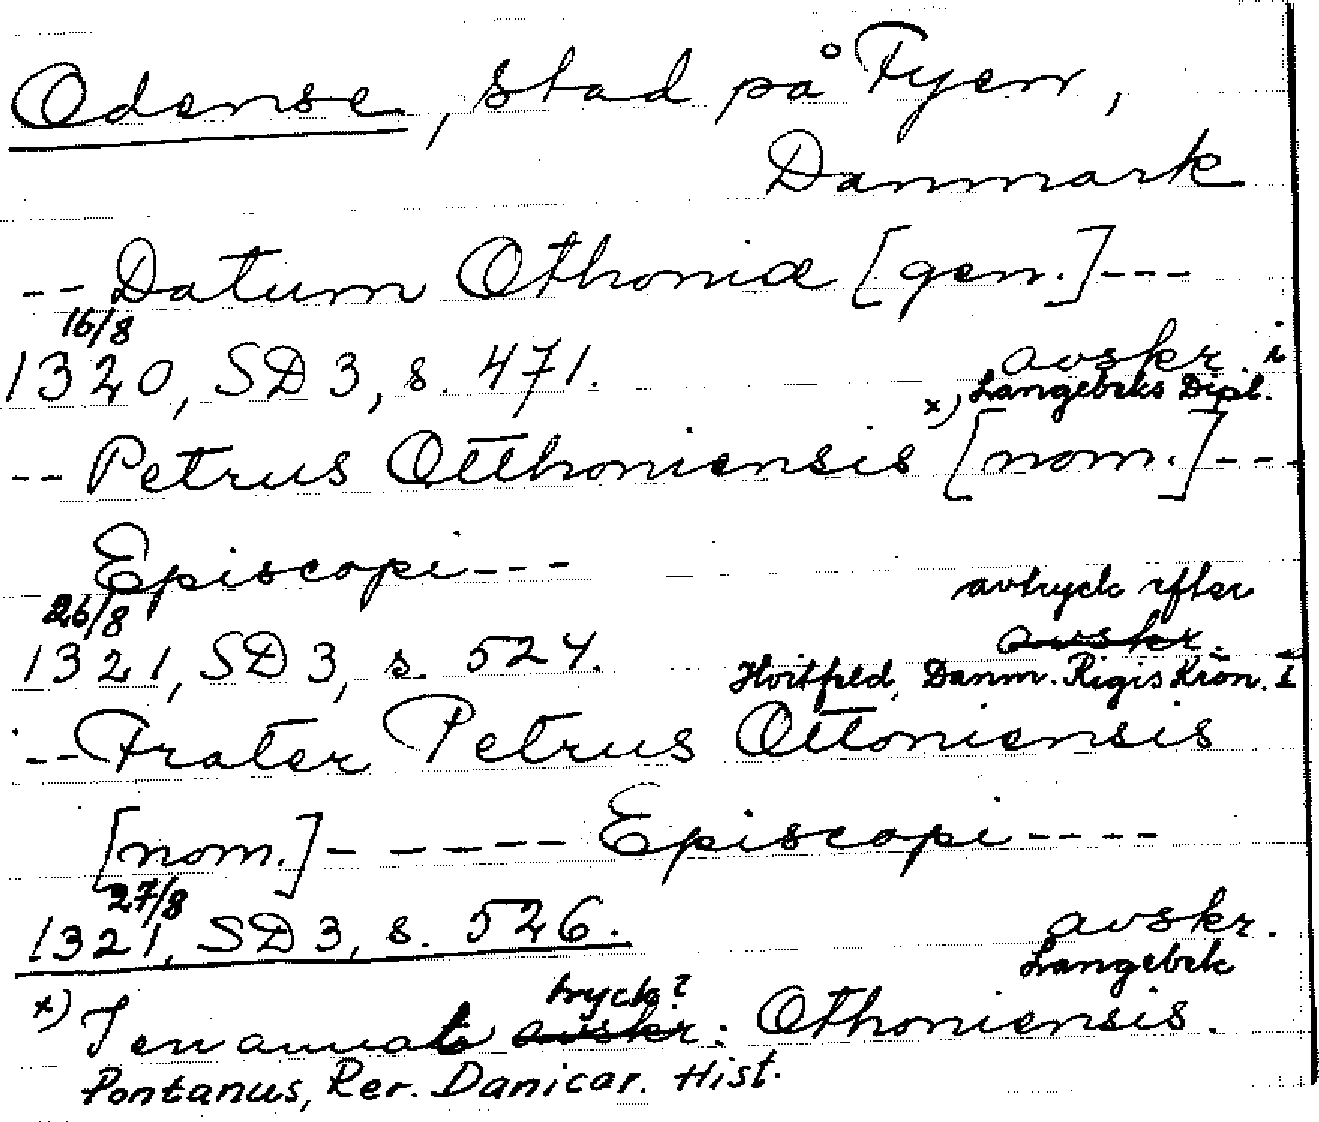 Odense, stad på Fyen,
Danmark
-- Datum Othoniæ [gen.] ---
16/8
1320, SD 3, s. 471. avskr. i
x) Langebeks Dipl.
-- Petrus Otthoniensis [nom.] ---
Episcopi ---
26/8 avtryck efter
1321, SD 3, s. 524. avskr.
Hvitfeld, Danm. Rigis Krön. I
-- Frater Petrus Ottoniensis
[nom.] ------ Episcopi ----
27/8
1321, SD 3, s. 526. avskr.
Langebek
x) I en annat avskr. tryck?: Othoniensis.
Pontanus, Rer. Danicar. Hist.